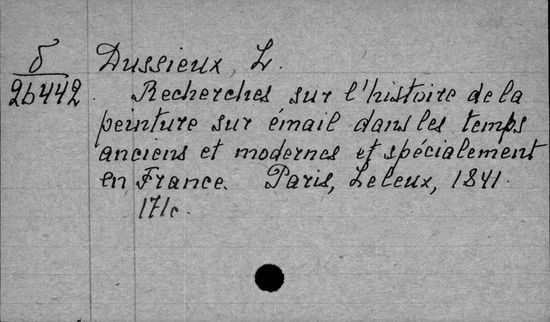 δ Dussieux, L.
26442. Recherches sur l'histoire de la
peinture sur email dans les temps
anciens et modernes et spécialement
en France. Paris, Leleux, 1841.
171c.